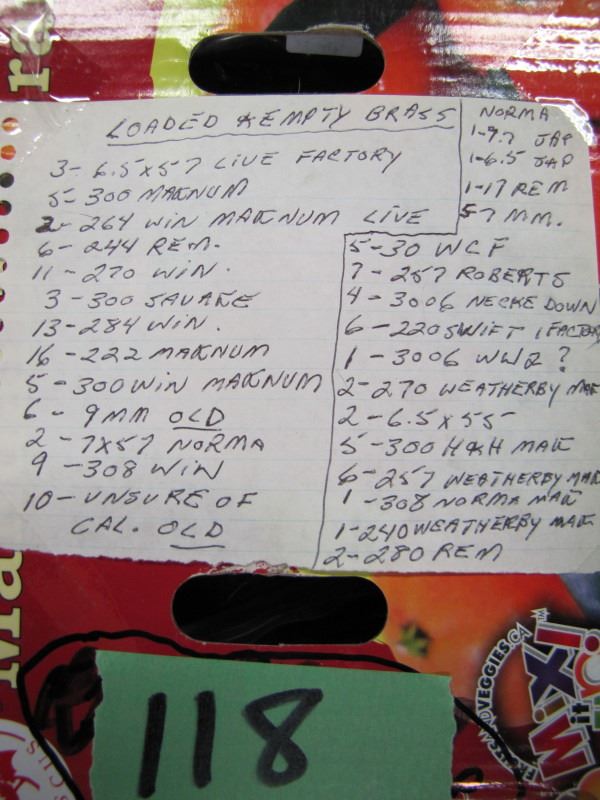 LOADED & EMPTY BRASS
3- 6.5x57 LIVE FACTORY
5- 300 MAGNUM
2- 264 WIN MAGNUM LIVE
6- 244 REM.
11- 270 WIN.
3- 300 SAVAGE
13- 284 WIN.
16- 222 MAGNUM
5- 300 WIN MAGNUM
6- 9MM OLD
2- 7x57 NORMA
9- 308 WIN
10- UNSURE OF
CAL. OLD
NORMA
1-7.7 JAP
1-6.5 JAP
1-17 REM
5-7 MM.
5-30 WCF
7-257 ROBERTS
4-3006 NECKE DOWN
6-220 SWIFT 1 FACTORY
1-3006 WW2?
2-270 WEATHERBY MAG
2-6.5x55
5-300 H&H MAG
6-257 WEATHERBY MAG
1-308 NORMA MAG
1-240 WEATHERBY MAG
2-280 REM
118
Mix it
VEGGIES.CA